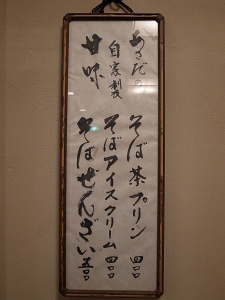 あさだの
自家製
甘味
そば茶プリン 四〇〇
そばアイスクリーム 四〇〇
そばぜんざい 五〇〇